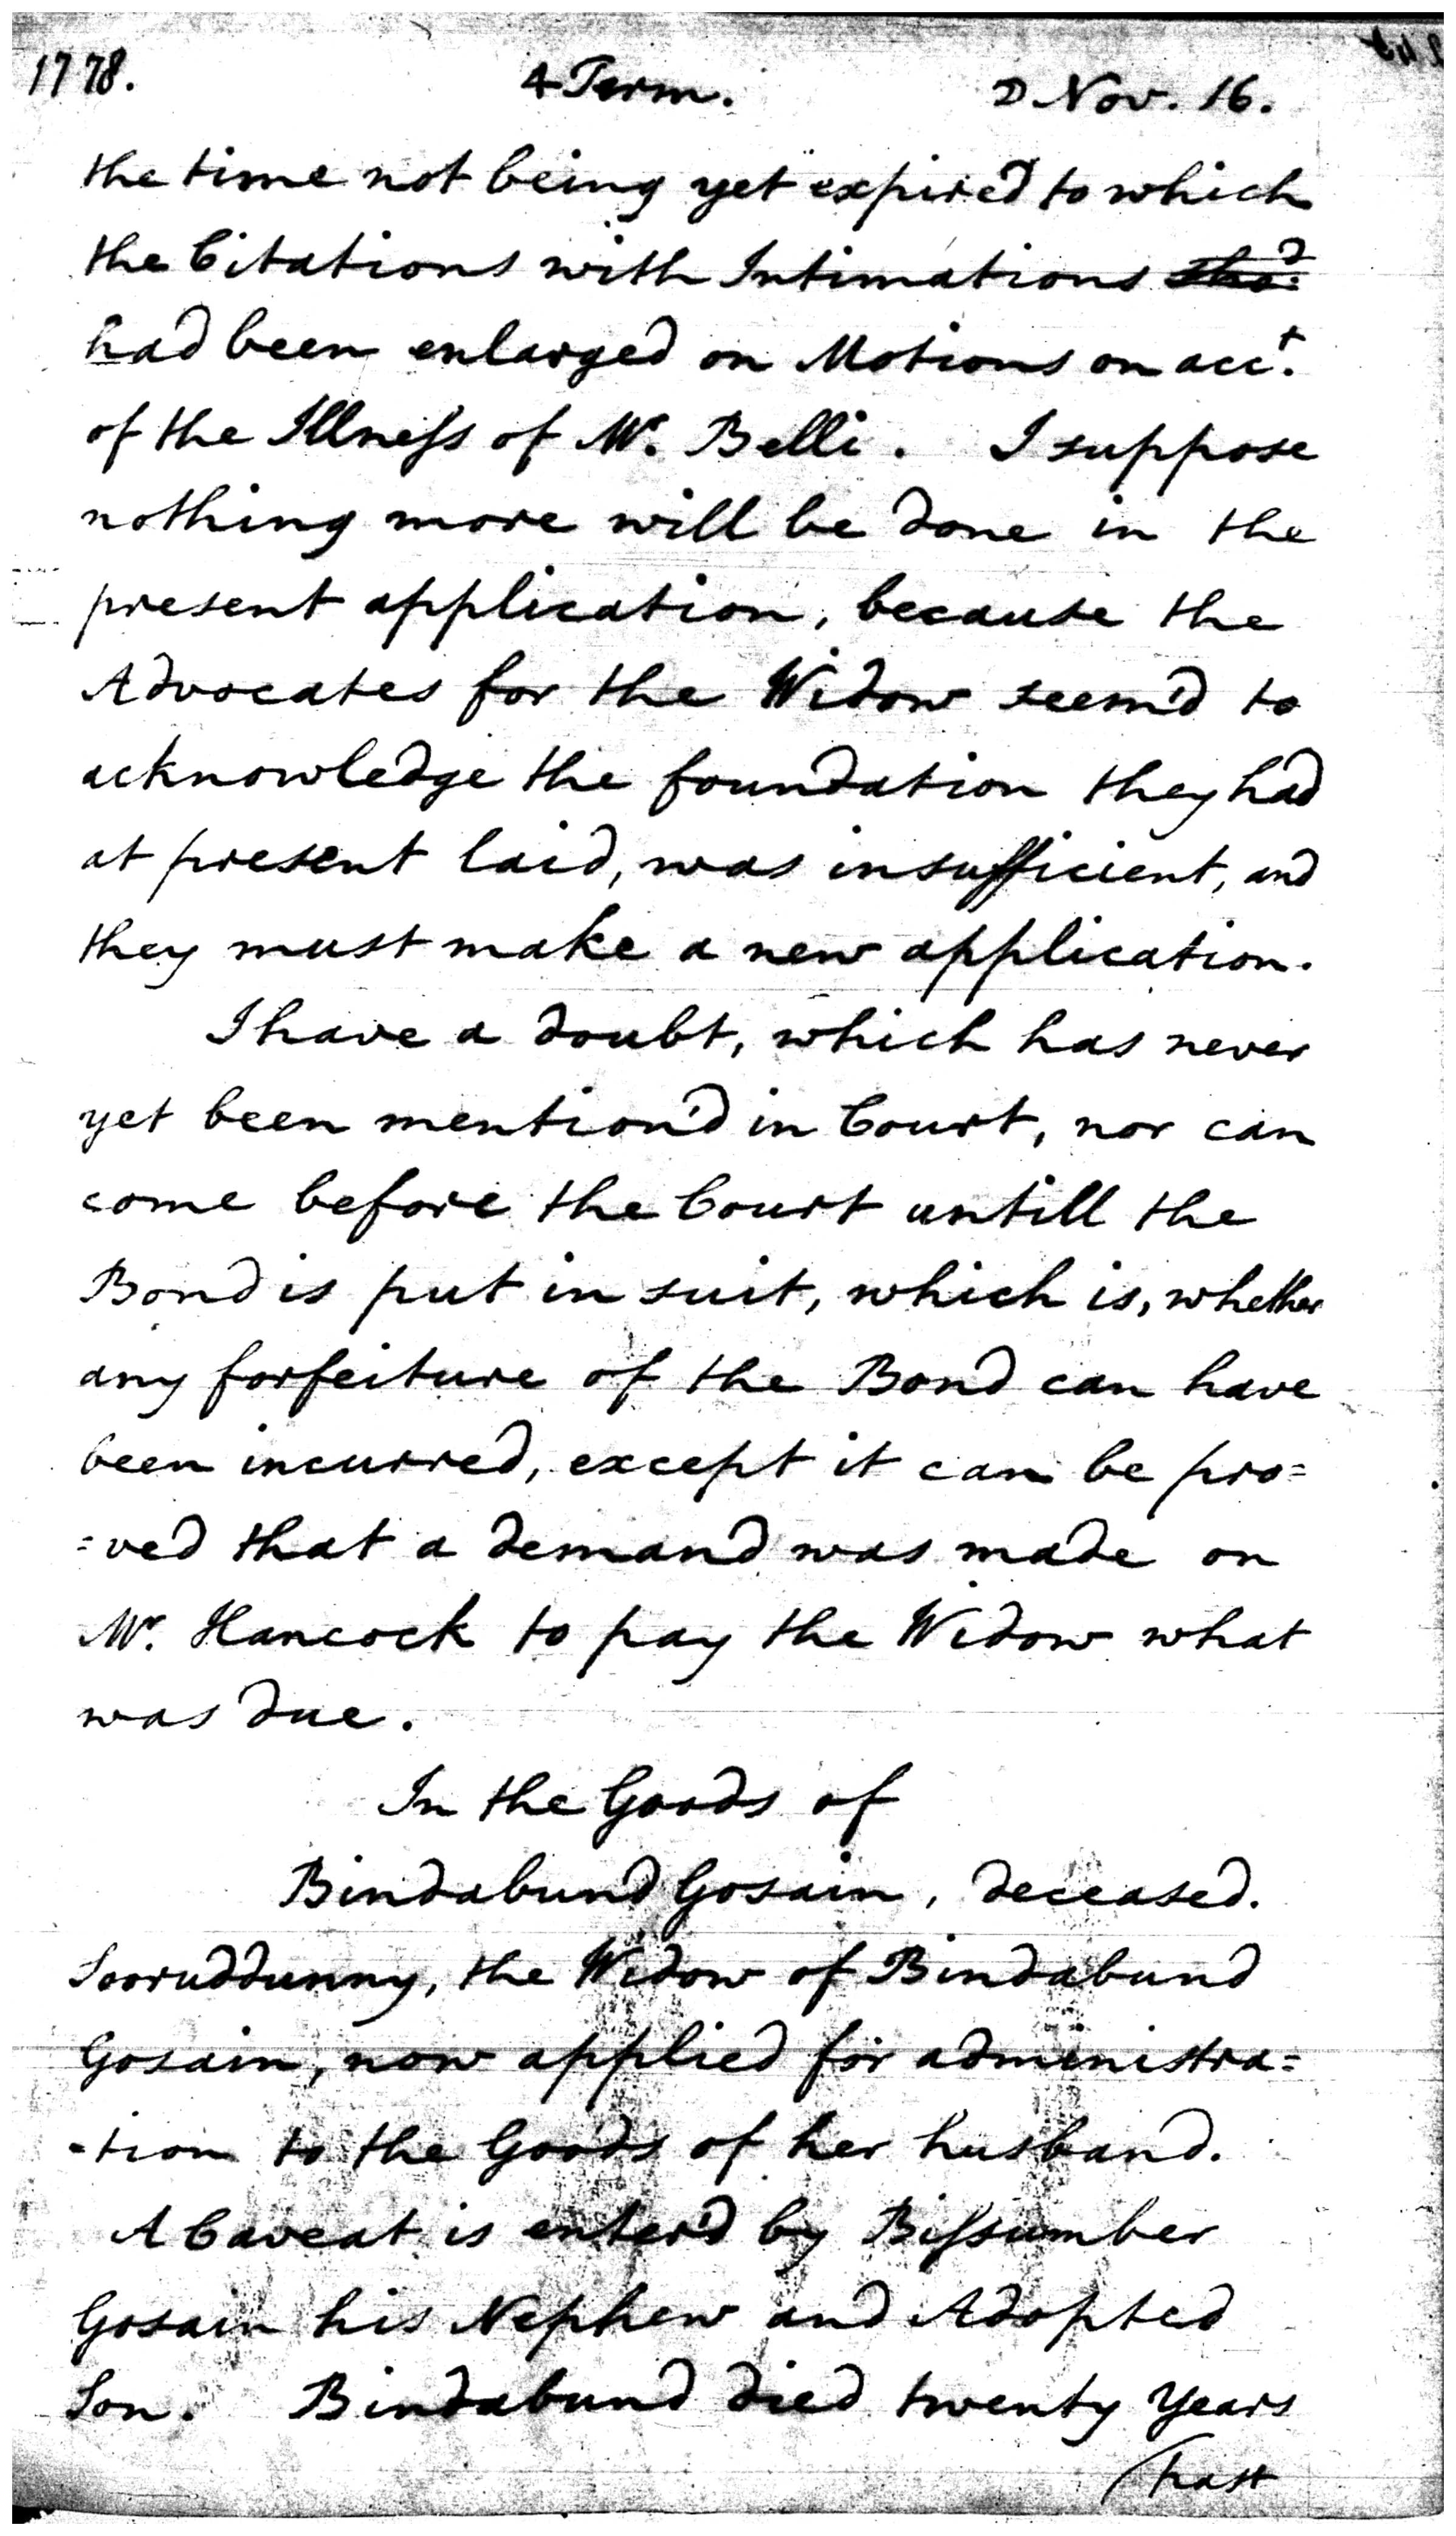 1778. 4 Term. ☽ Nov. 16.
the time not being yet expired to which
the Citations with Intimations sho.d
had been enlarged on Motions on acc.t
of the Illneſs of Mr. Belli. I suppose
nothing more will be done in the
present application, because the
Advocates for the Widow seem'd to
acknowledge the foundation they had
at present laid, was insufficient, and
they must make a new application.
I have a doubt, which has never
yet been mention'd in Court, nor can
come before the Court untill the
Bond is put in suit, which is, whether
any forfeiture of the Bond can have
been incurred, except it can be pro=
=ved that a demand was made on
Mr. Hancock to pay the Widow what
was due.
In the Goods of
Bindabund Gosain, deceased.
Sooruddunny, the Widow of Bindabund
Gosain, now applied for administra=
-tion to the Goods of her husband.
A Caveat is enter'd by Biſsumber
Gosain his Nephew and Adopted
Son. Bindabund died twenty Years
/past